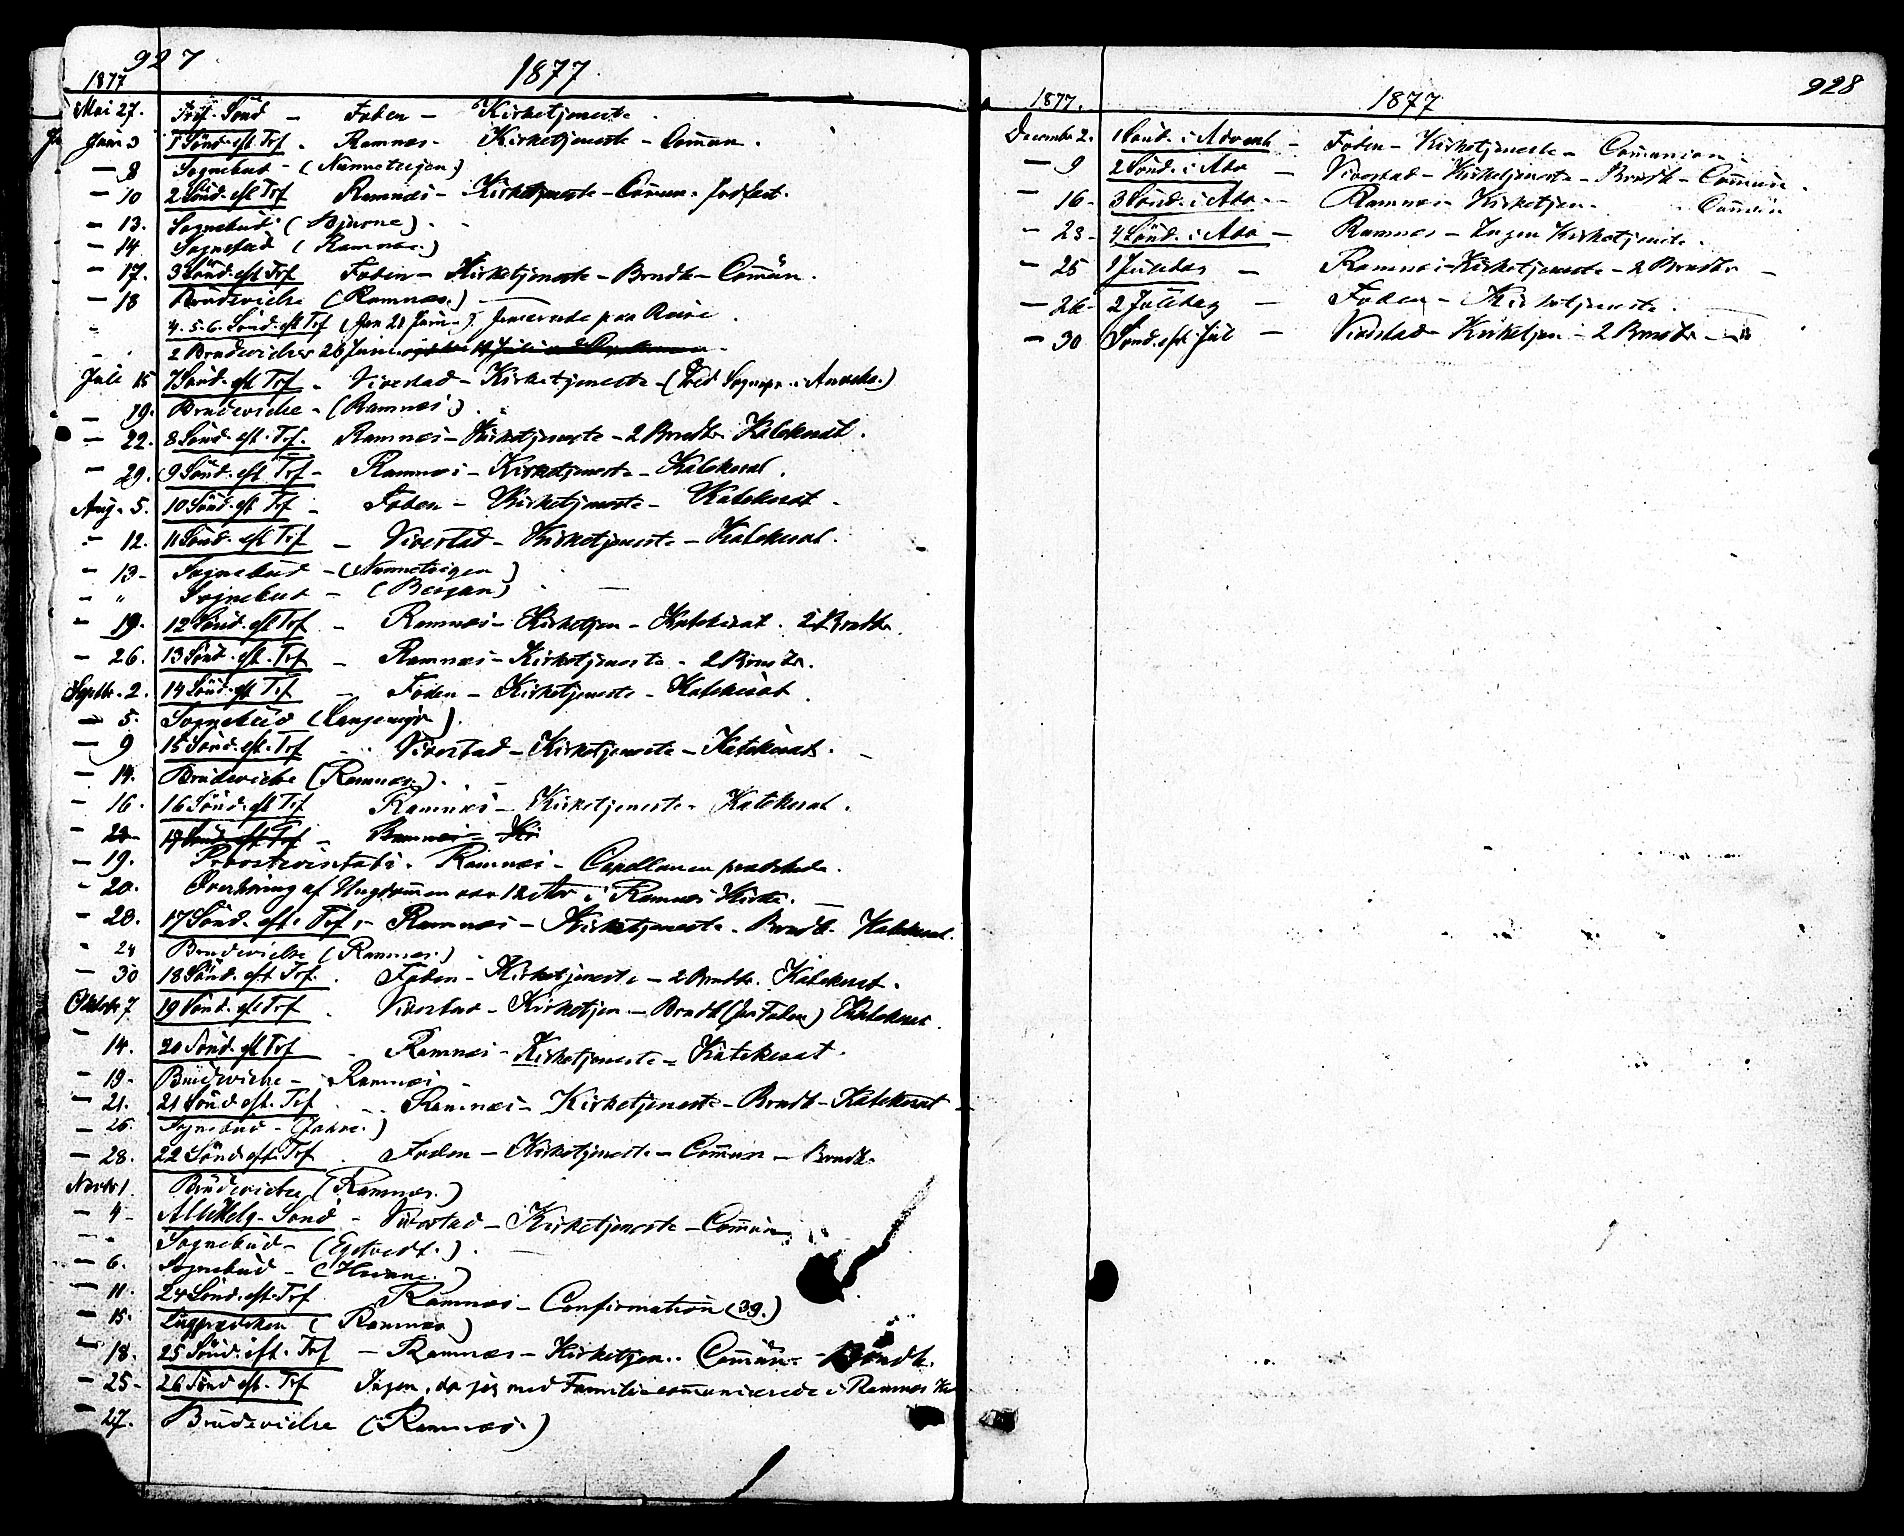 927
1877
1877
Mai 27. Tref. Sönd - Foden - Kirketjeneste
Juni 3 1 Sönd. eft Tref. Ramnæs - Kirketjeneste - Com̄un.
— 8 Sognebud - (
— 10 2 Sönd. eft Tref Ramnæs - Kirketjeneste - Com̄un.
— 13. Sognebud (Bjerne)
— 14 Sognebud (Ramnæs.)
— 17. 3 Sönd. eft Tref Foden - Kirketjeneste - Brudt - Com̄un.
— 18 Brudevielse (Ramnæs.)
" 4. 5. 6. Sönd. eft Tref (fra 21 Juni - ) paa Reise.
" 2 Brudevielser 26 Juni
Juli 15 7 Sönd. eft Tref - Vivestad - Kirketjeneste - (
— 19. Brudevielse - (Ramnæs)
— 22. 8 Sönd. eft. Tref. Ramnæs - Kirketjeneste - 2 Brudtr. Katekisat.
— 29. 9 Sönd. eft Tref - Ramnæs - Kirketjeneste - Katekisat.
Aug. 5. 10 Sönd. eft Tref - Foden - Kirketjeneste - Katekisat -
— 12. 11 Sönd. eft Tref - Vivestad - Kirketjeneste - Katekisat.
— 13 - Sognebud - (
— " Sognebud - (Bergan)
— 19. 12 Sönd. eft Tref - Ramnæs - Kirketjen - Katekisat. 2 Brudtr.
— 26. 13 Sönd. eft. Tref - Ramnæs - Kirketjeneste - 2 Brudtr.
Septbr. 2. 14 Sönd. eft Tref - Foden - Kirketjeneste - Katekisat
— 5. Sognebud (Langemyr).
— 9 15 Sönd. eft. Tref - Vivestad - Kirketjeneste - Katekisat.
— 14. Brudevielse (Ramnæs).
— 16. 16 Sönd. eft Tref Ramnæs - Kirketjeneste - Katekisat.
— 23 - 17 Sönd. eft Tref - Ramnæs - Ki
— 19. Provstevisitats - Ramnæs - Capellanen prædikede.
— 20. Overhöring af Ungdom̄en i Ramnæs Kirke.
— 23. 17 Sönd. eft. Tref - Ramnæs - Kirketjeneste - Brudt - Katekisat.
— 24 Brudevielse (Ramnæs.)
— 30 18 Sönd. eft Tref. Foden - Kirketjeneste - 2 Brudtr. Katekisat.
Oktobr 7 19 Sönd. eft Tref. Vivestad - Kirketjen - Brudt (fra Foden) Katekisat.
— 14. 20 Sönd. eft Tref - Ramnæs - Kirketjeneste - Katekisat.
— 19 - Brudevielse - Ramnæs -
— 21. 21 Sönd eft. Tref. Ramnæs - Kirketjeneste - Brudt - Katekisat -
— 26. Sognebud - (
— 28. 22 Sönd eft. Tref. Foden - Kirketjeneste - Com̄un - Brudt.
Novbr 1. Brudevielse (Ramnæs.)
— 4 - Allehelg. Sönd - Vivestad - Kirketjeneste - Com̄un
— " Sognebud - (
— 6. Sognebud - (
— 11. 24 Sönd. eft. Tref Ramnæs - Confirmation (39.)
— 15. (Ramnæs)
— 18. 25 Sönd. eft. Tref - Ramnæs - Kirketjen. Com̄un - Brudt.
— 25 - 26 Sönd eft. Tref Ingen, da jeg med Familie communicerede i Ramnæs
— 27. Brudevielse (Ramnæs.)
928
1877.
1877
Decembr 2. 1 Sönd. i Advent - Foden - Kirketjeneste - Communion -
— 9 2 Sönd. i Adv - Vivestad - Kirketjeneste - Brudt - Com̄un.
— 16 - 3 Sönd. i Adv. - Ramnæs - Kirketjen - Com̄un
— 23 - 4 Sönd. i Adv - Ramnæs - Ingen Kirketjeneste.
— 25 1 Juledag - Ramnæs - Kirketjeneste - 2 Brudtr -
— 26 - 2 Juledag - Foden - Kirketjeneste.
— 30 Sönd. eft. Jul - Vivestad - Kirketjen - 2 Brudtr -